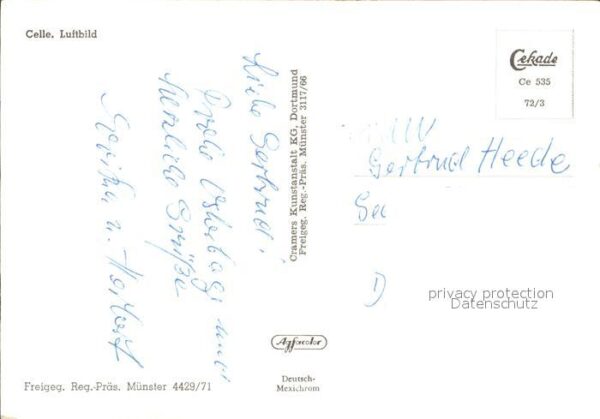 Celle. Luftbild
Liebe Gertrud!
Frohe Ostertage und
Herzliche Grüße
u. Herbert
Cramers Kunstanstalt KG, Dortmund
Freigeg. Reg.-Präs. Münster 3117/66
Cekade
Ce 535
72/3
Gertrud Heede
privacy protection
Datenschutz
Agfacolor
Deutsch-
Mexichrom
Freigeg. Reg.-Präs. Münster 4429/71